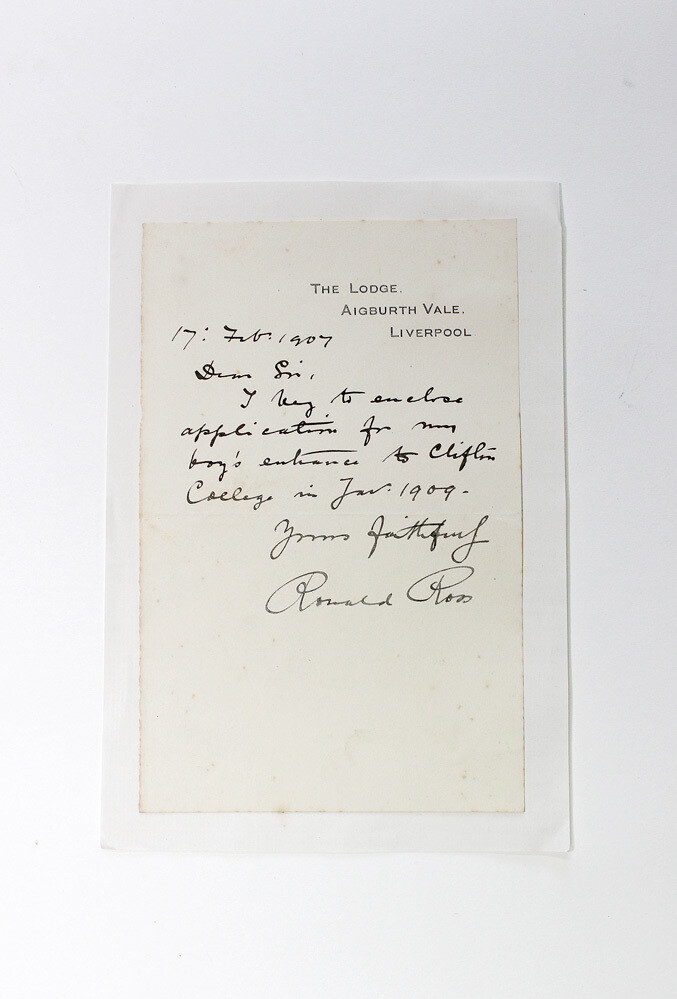 THE LODGE.
AIGBURTH VALE.
LIVERPOOL
17: Feb: 1907
Dear Sir,
I beg to enclose
application for my
boy's entrance to Clifton
College in Jan: 1909-
Yours faithfully
Ronald Ross